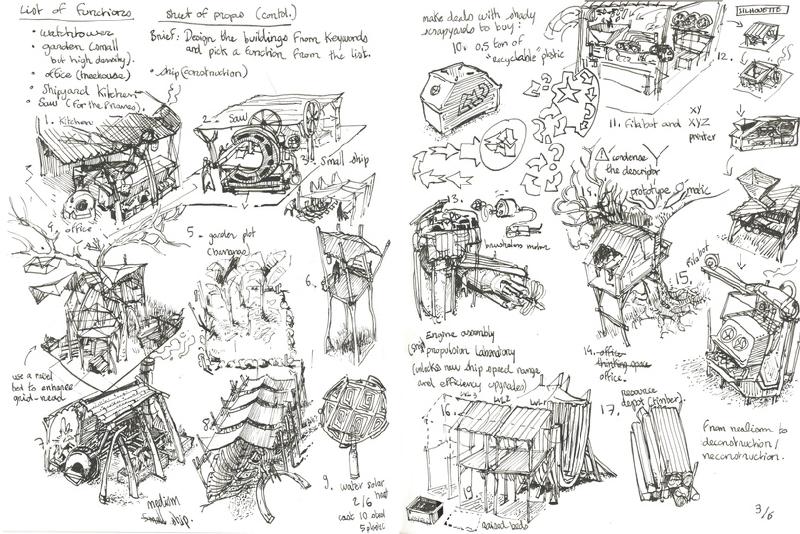 List of Functions
• watchtower
• garden (small
but high density).
• office (treehouse)
• Shipyard Kitchen
• Saw (for the planes).
Sheet of props (contd.)
Brief: Design the buildings from keywords
and pick a function from the list.
• ship (construction)
1. Kitchen
2. Saw
3. Small ship
4. office
5 - garden plot
(bananas)
6.
use a
bed to enhance
grid-read
7.
8.
medium
ship.
9. water solar
heat
2/6
cost 10 steel
5 plastic
make deals with shady
scrapyards to buy:
10. 0.5 ton of
"recyclable" plastic
11. Filabot and XY
XYZ
printer
12.
SILHOUETTE
condense
the descriptor
prototype O matic
13.
brushless motor
Engine assembly
Ship propulsion Laboratory
(unlocks new ship speed range
and efficiency upgrades)
14. office
thinking space
office.
15. Filabot
16.
LVL 3
LVL 2
LVL 1
17. resource
depot (timber)
raised beds
From realism to
deconstruction/
reconstruction.
3/6